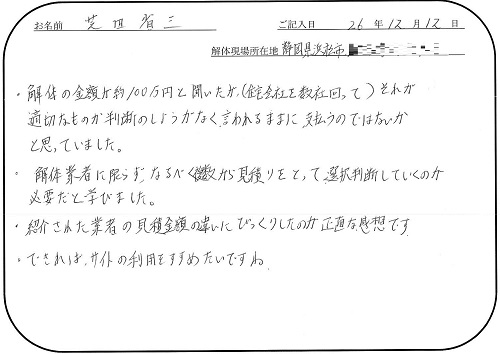 お名前 芝田省三 ご記入日 26年12月12日
解体現場所在地 静岡県浜松市
・解体の金額が約100万円と聞いたが(住宅会社を数社回って)それが
適切なものか判断のしようがなく、言われるままに支払うのではないか
と思っていました。
・解体業者に限らずなるべく複数から見積りをとって、選択判断していくのが
必要だと学びました。
・紹介された業者の見積金額の違いにびっくりしたのが正直な感想です
・できれば、サイトの利用をすすめたいですね